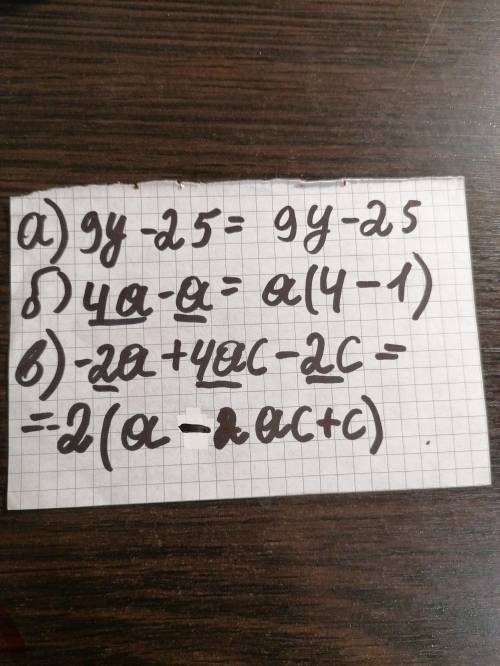 а) 9y - 25 = 9y - 25
б) 4a - a = a(4 - 1)
в) -2a + 4ac - 2c =
= -2(a - 2ac + c)